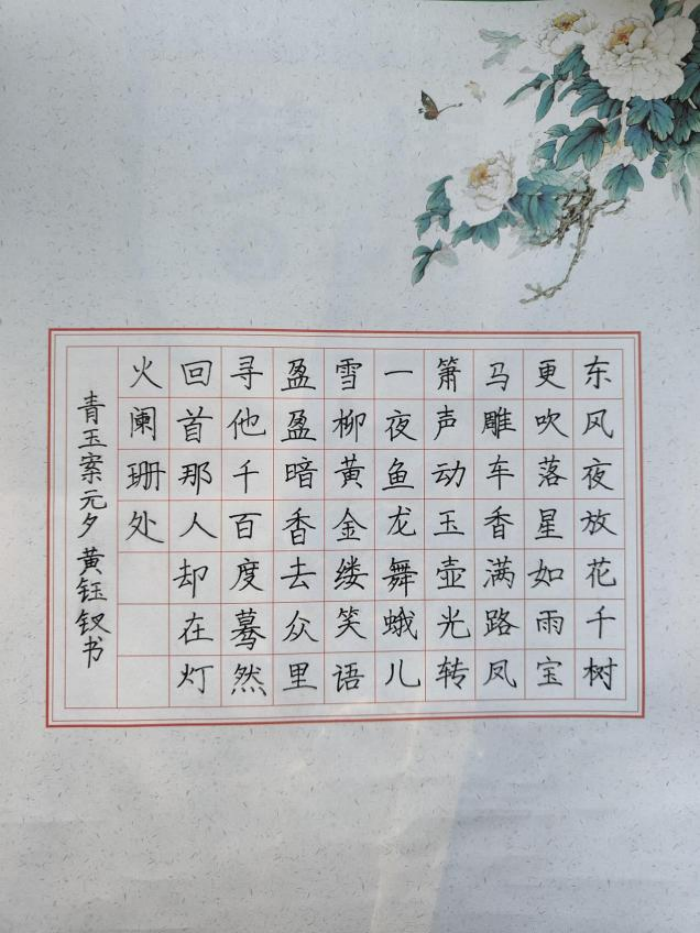 东风夜放花千树
更吹落星如雨宝
马雕车香满路凤
箫声动玉壶光转
一夜鱼龙舞蛾儿
雪柳黄金缕笑语
盈盈暗香去众里
寻他千百度蓦然
回首那人却在灯
火阑珊处
青玉案元夕 黄钰钗书